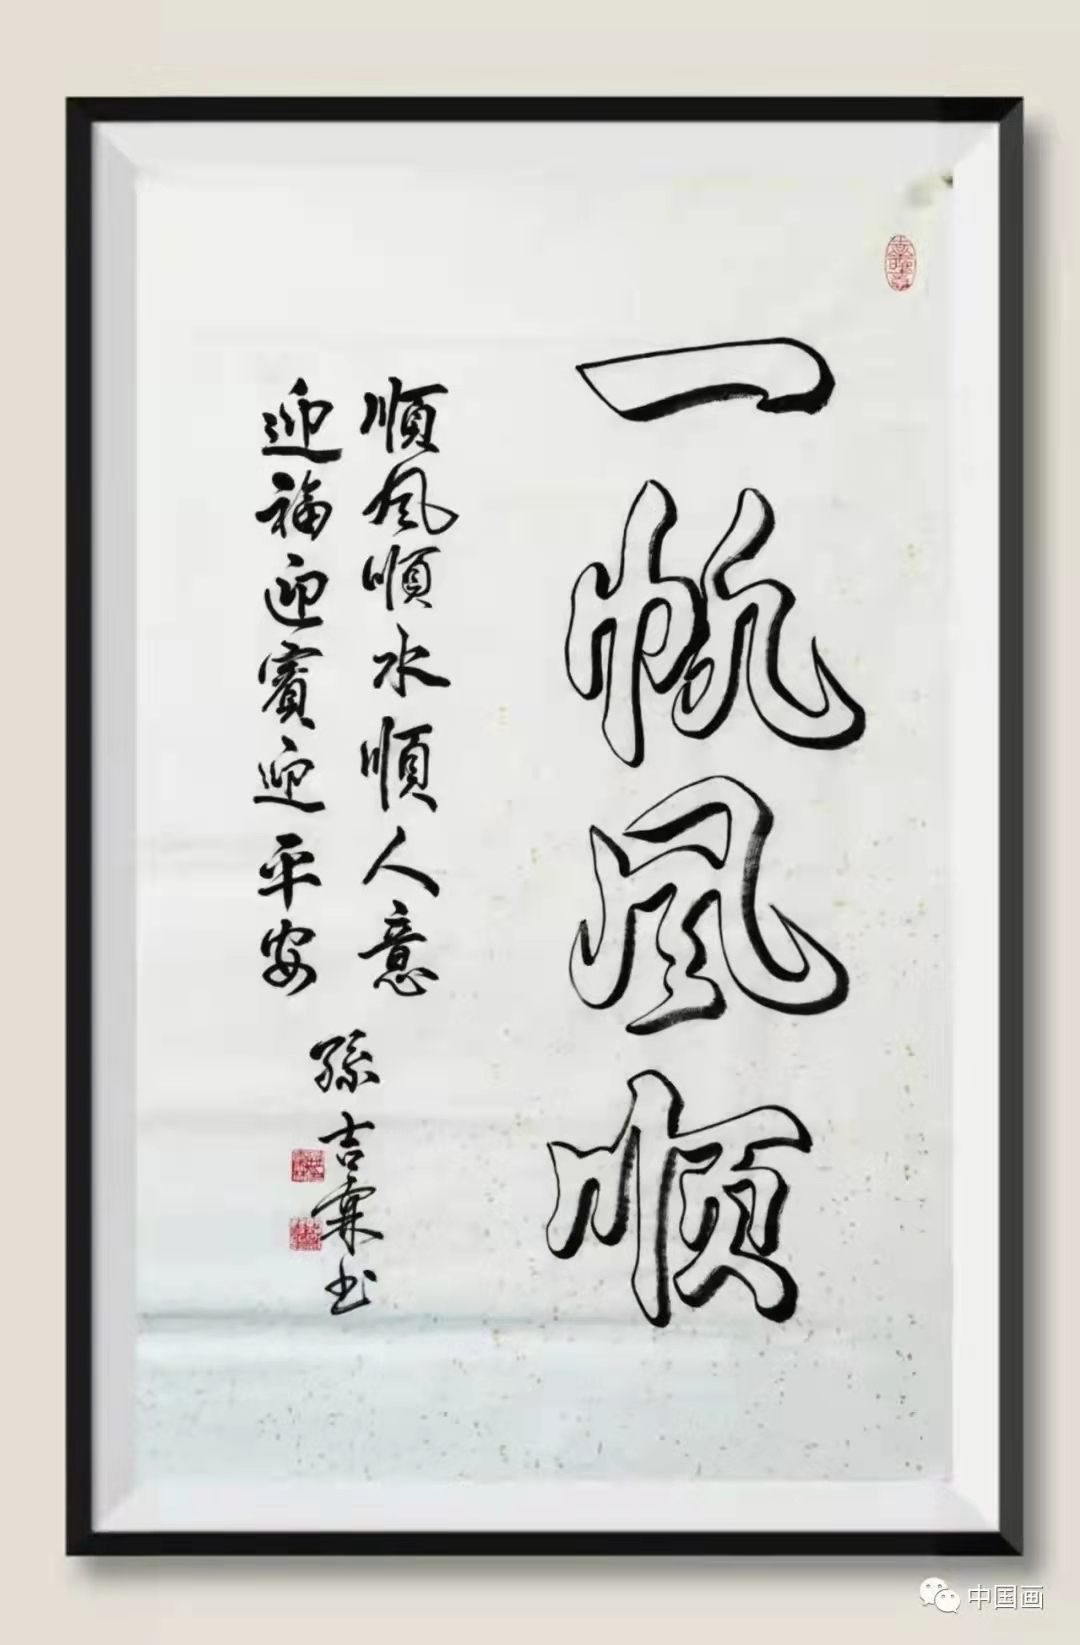 一帆风顺
順风順水順人意
迎福迎賓迎平安
孫吉霖书
中国画